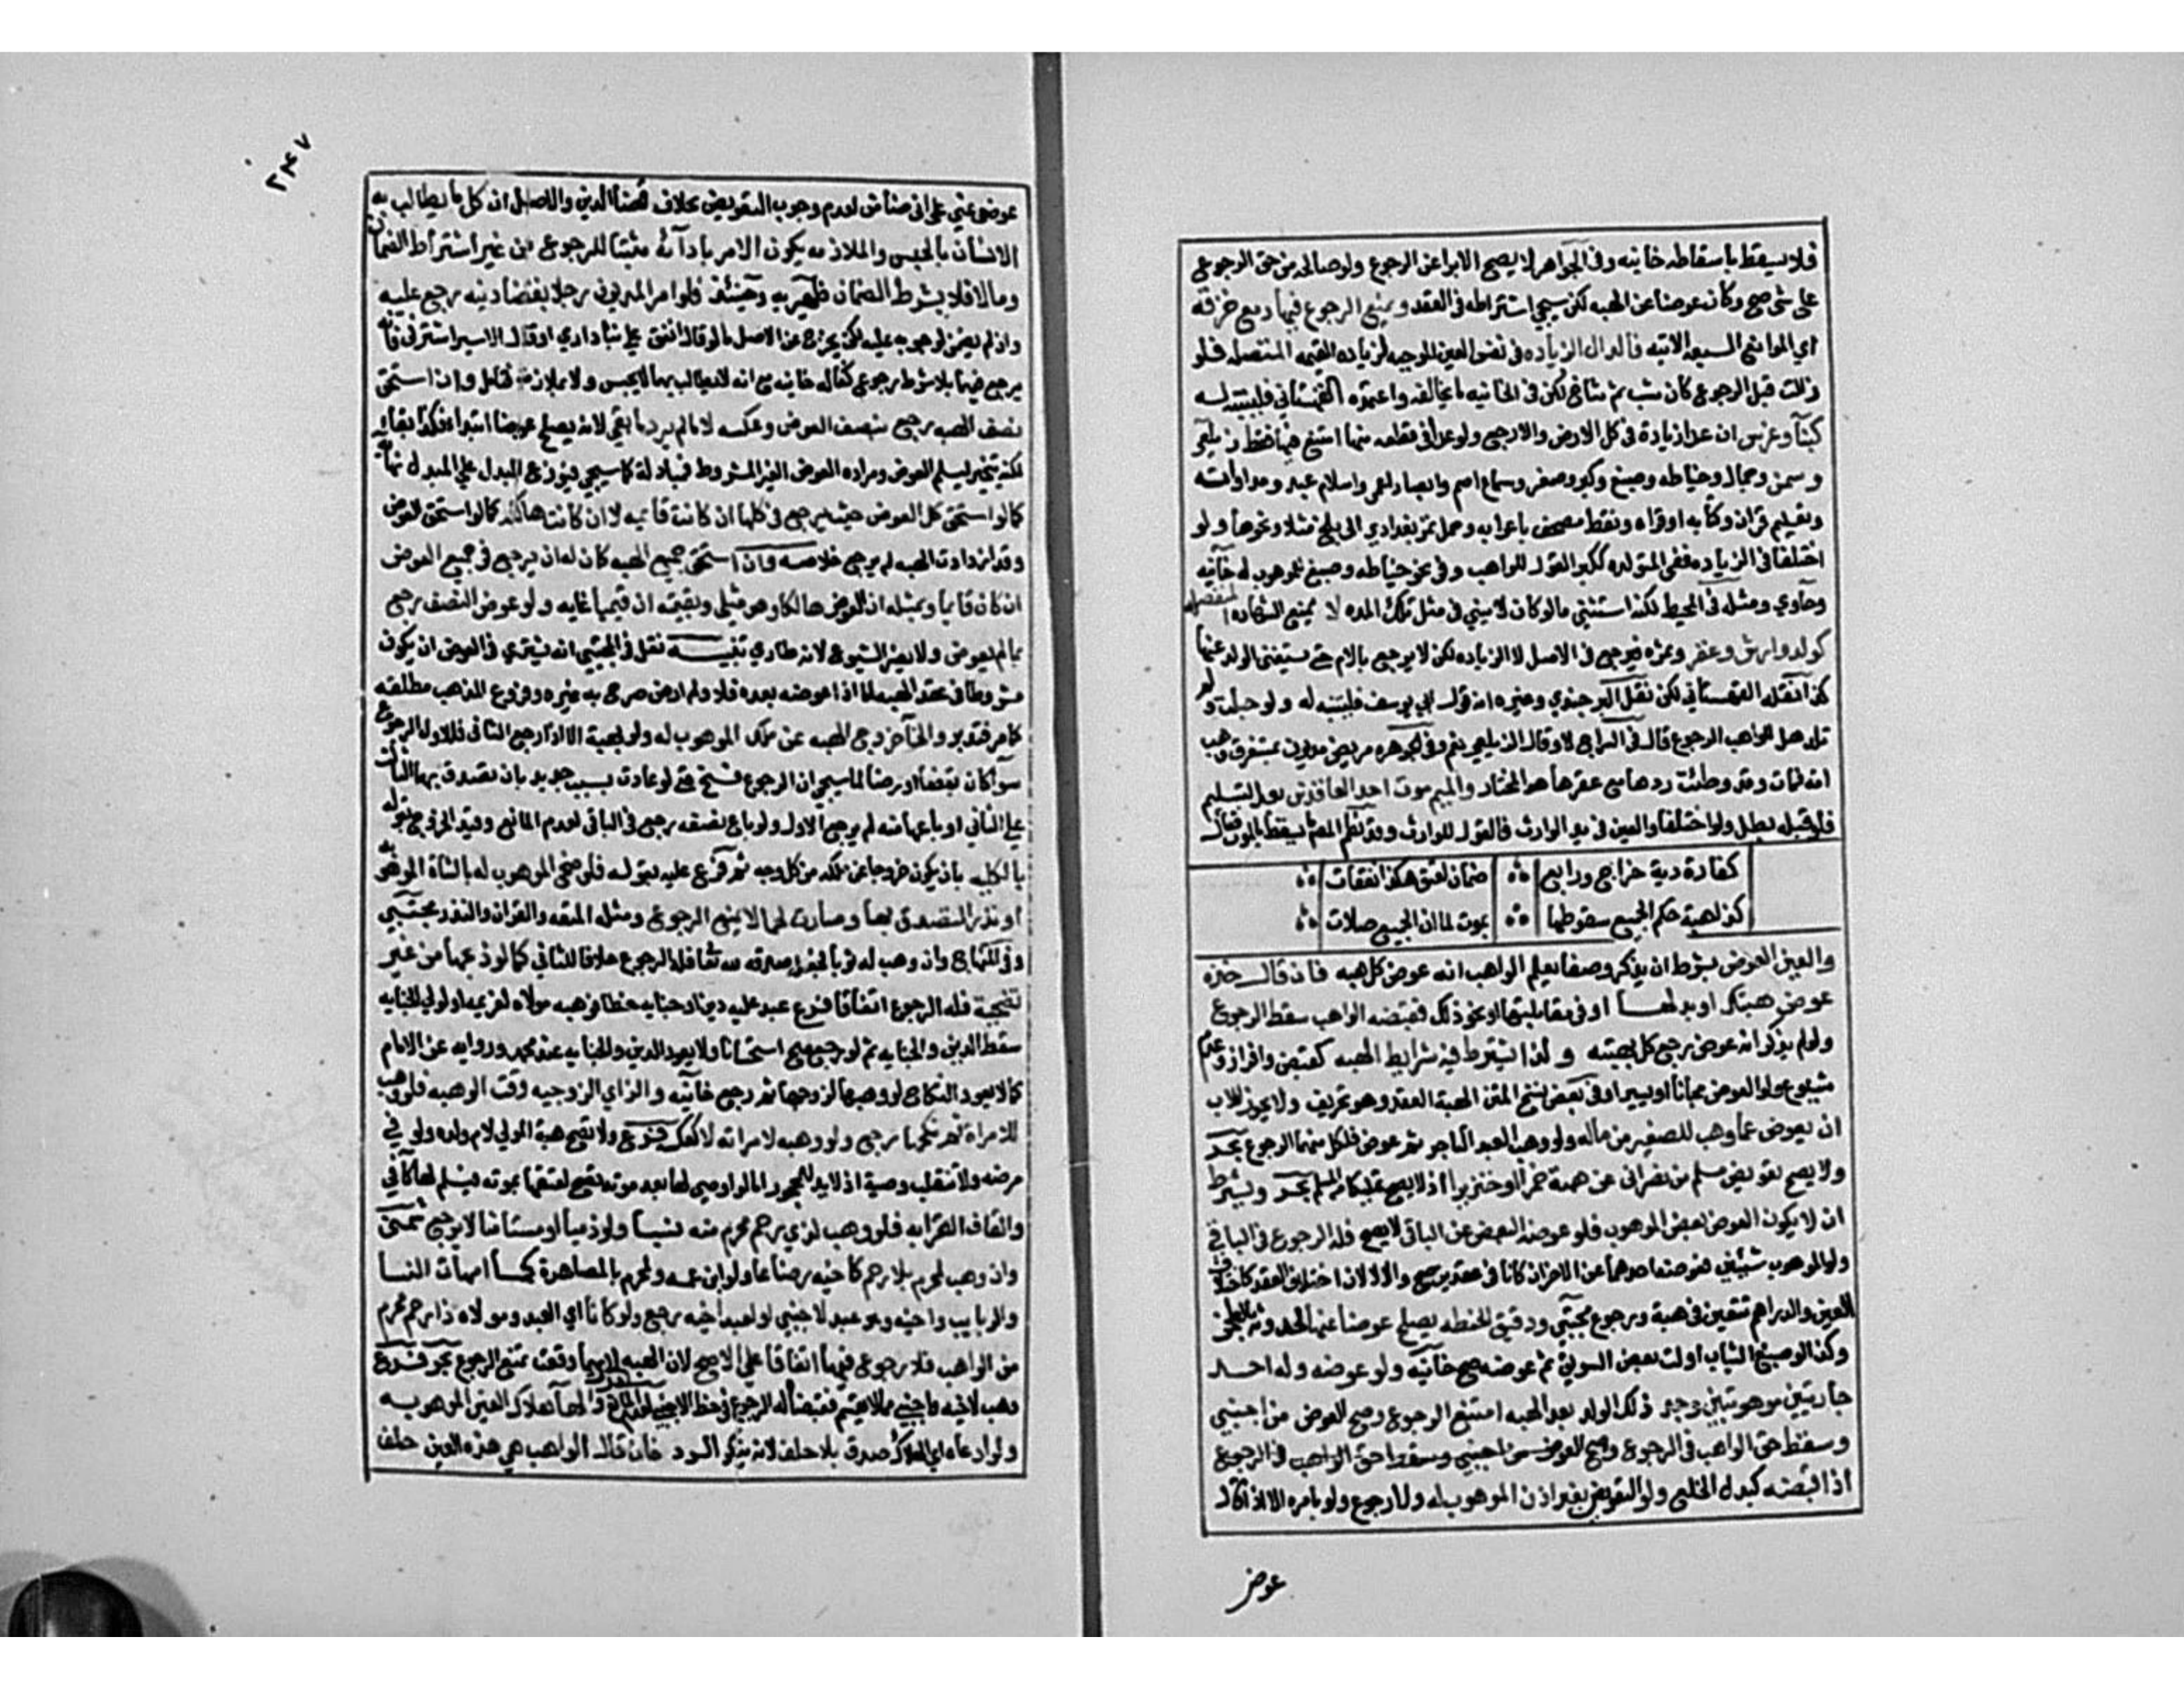 فلا يسقط باسقاطه خانيه وفي الجواهر لا يصح الابرا عن الرجوع ولو صالحه من حق الرجوع
على شي صح وكان عوضا عن الهبه لكن سيجي اشتراطه في العقد ويمنع الرجوع فيها دمع خزقه
اي الموانع السبعه الاتيه فالدال الزياده في نفس العين الموجبه لزياده القيمه المتصله فلو
زالت قبل الرجوع كان شب ثم شاخ لكن في الخانيه ما يخالفه واعتمده القهستاني فليتنبه له
كبنا وغرس ان عدا زيادة في كل الارض والا رجع ولو عدا في قطعه منها امتنع فيها فقط زيلعي
وسمن وجمال وخياطه وصبغ وكبر وصغر وسماع اصم وابصار اعمى واسلام عبد ومداواته
وتعليم قران وكتابه او قراه ونقط مصحف باعرابه وحمل تمر بغدادي الى بلخ مثلا ونحوها ولو
اختلفا في الزياده ففي المتولده ككبر القول للواهب وفي نحو خياطه وصبغ للموهوب له خانيه
وحاوي ومثله في المحيط لكنه استثنى ما لو كان لا يبني في مثل تلك المده لا تمنع الزياده المنفصله
كولد وارش وعقر وثمره فيرجع في الاصل لا الزياده لكن لا يرجع بالام حتى يستغني الولد عنها
كذا نقله القهستاني لكن نقل البرجندي وغيره انه قول ابي يوسف فليتنبه له ولو حبلت ولم
تلد هل للواهب الرجوع قال في السراج لا وقال الزيلعي نعم وفي الجوهره مريض مديون بمستغرق وهب
امه فمات وقد وطئت ردها مع عقرها هو المختار والميم موت احد العاقدين بعد التسليم
فلو قبله بطل ولو اختلفا والعين في يد الوارث فالقول للوارث وقد نظم المص ما يسقط بالموت فقال
كفارة دية خراج ورابع ضمان لعتق هكذا نفقات
كذا هبة حكم الجميع سقوطها بموت لما ان الجميع صلات
والعين العوض بشرط ان يذكر وصفا يعلم الواهب انه عوض كل هبه فان قال خذه
عوض هبتك او بدلها او في مقابلتها او نحو ذلك فقبضه الواهب سقط الرجوع
ولو لم يذكر انه عوض رجع كل بهبته ولذا يشترط فيه شرايط الهبه كقبض وافراز وعدم
شيوع ولو العوض مجانسا او يسيرا وفي بعض نسخ المتن الهبة العقد وهو تحريف ولا يجوز للاب
ان يعوض عما وهب للصغير من ماله ولو وهب العبد التاجر ثم عوض فلكل منهما الرجوع بحر
ولا يصح تعويض مسلم من نصراني عن هبة خمرا او خنزيرا اذ لا يصح تمليكا من المسلم بحر ويشترط
ان لا يكون العوض بعض الموهوب فلو عوضه البعض عن الباقي لا يصح فله الرجوع في الباقي
ولو الموهوب شيئين فعوضه احدهما عن الاخر ان كانا في عقدين صح والا لا لان اختلاف العقد كاختلاف
العين والدراهم تتعين في هبة ورجوع مجتبي ودقيق الحنطه يصلح عوضا عنها لحدوثه بالطحن
وكذا لو صبغ الثياب او لت بعض السويق ثم عوضه صح خانيه ولو عوضه ولد احد
جاريتين موهوبتين وجد ذلك الولد بعد الهبه امتنع الرجوع وصح العوض من اجنبي
وسقط حق الواهب في الرجوع وصح العوض من اجنبي وسقط حق الواهب في الرجوع
اذا قبضه كبدل الخلع ولو التعويض بغير اذن الموهوب له ولا رجوع ولو بامره الا اذا قال
عوض
٢٤٧
عوض عني على اني ضامن لعدم وجوب التعويض بخلاف قضا الدين والاصل ان كل ما يطالب به
الانسان بالحبس والملازمه يكون الامر بادائه مثبتا للرجوع من غير اشتراط الضمان
وما لا فلا بشرط الضمان ظهيريه وحينئذ فلو امر المديون رجلا بقضا دينه رجع عليه
وان لم يضمن لوجوبه عليه لكن يخرج عن الاصل ما لو قال انفق على بنا داري او قال الاسير اشترني فانه
يرجع فيهما بلا شرط رجوع كفاله خانيه مع انه لا يطالب بهما لا بحبس ولا بملازمه فتامل وان استحق
نصف الهبه رجع بنصف العوض وعكسه لا ما لم يرد ما بقي لانه يصلح عوضا ابتداء فكذا بقاء
لكنه يتخير ليسلم العوض ومراده العوض الغير المشروط فمبادلة كما سيجي فيوزع البدل على المبدل نهايه
كما لو استحق كل العوض حيث يرجع في كلها ان كانت قايمه لا ان كانت هالكه كما لو استحق العوض
وقد ازدادت الهبه لم يرجع خلاصه وان استحق جميع الهبه كان له ان يرجع في جميع العوض
ان كان قايما وبمثله ان العوض هالكا وهو مثلي وبقيمته ان قيميا غايه ولو عوض النصف رجع
بما لم يعوض ولا يضر الشيوع لانه طاري تنبيه نقل في المجتبي انه يشترط في العوض ان يكون
مشروطا في عقد الهبه اما اذا عوضه بعده فلا ولم ار من صرح به غيره وفروع المذهب مطلقه
كما مر فتدبر والخا خروج الهبه عن ملك الموهوب له ولو بهبة الا اذا رجع الثاني فللاول الرجوع
سوا كان بقضا او رضا لما سيجي ان الرجوع فسخ حتى لو عادت بسبب جديد بان تصدق بها الثالث
على الثاني او باعها منه لم يرجع الاول ولو باع نصفه رجع في الباقي لعدم المانع وقيد الخروج بقوله
بالكليه بان يكون خروجا عن ملكه من كل وجه ثم فرع عليه بقوله فلو ضحى الموهوب له بالشاة الموهوبه
او نذر التصدق بها وصارت لحما لا يمنع الرجوع ومثله المتعه والقران والنذر مجتبي
وفي المنهاج وان وهب له ثوبا فجعله صدقه لله تعالى فله الرجوع خلافا للثاني كما لو ذبحها من غير
تضحية فله الرجوع اتفاقا فرع عبد عليه دين او جنايه خطا فوهبه مولاه لغريمه او لولي الجنايه
سقط الدين والجنايه ثم لو رجع صح استحسانا ولا يعود الدين والجنايه عند محمد وروايه عن الامام
كما لا يعود النكاح لو وهبها لزوجها ثم رجع خانيه والزاي الزوجيه وقت الهبه فلو وهب
للامراة ثم نكحها رجع ولو وهبه لامراته لا كعكسه فرع ولا تصح هبة المولي لام ولده ولو في
مرضه ولا تنقلب وصية اذ لا يد للمحجور اما لو اوصي لها بعد موته تصح لعتقها بموته فيسلم لها كافي
والقاف القرابه فلو وهب لذي رحم محرم منه نسبا ولو ذميا او مستامنا لا يرجع شمني
وان وهب لمحرم بلا رحم كاخيه رضاعا ولو ابن عمه ولمحرم بالمصاهرة كامهات النسا
والربايب واخيه وهو عبد لاجنبي او لعبد اخيه رجع ولو كانا اي العبد ومولاه ذا رحم محرم
من الواهب فلا رجوع فيها اتفاقا على الاصح لان الهبه لايهما وقعت تمنع الرجوع بحر فرع
وهب لاخيه واجنبي ما لا يقسم فقبضاه له الرجوع في حظ الاجنبي لعدم المانع والها هلاك العين الموهوبه
ولو ادعاه اي الهلاك صدق بلا حلف لانه ينكر الرد فان قال الواهب هي هذه العين حلف